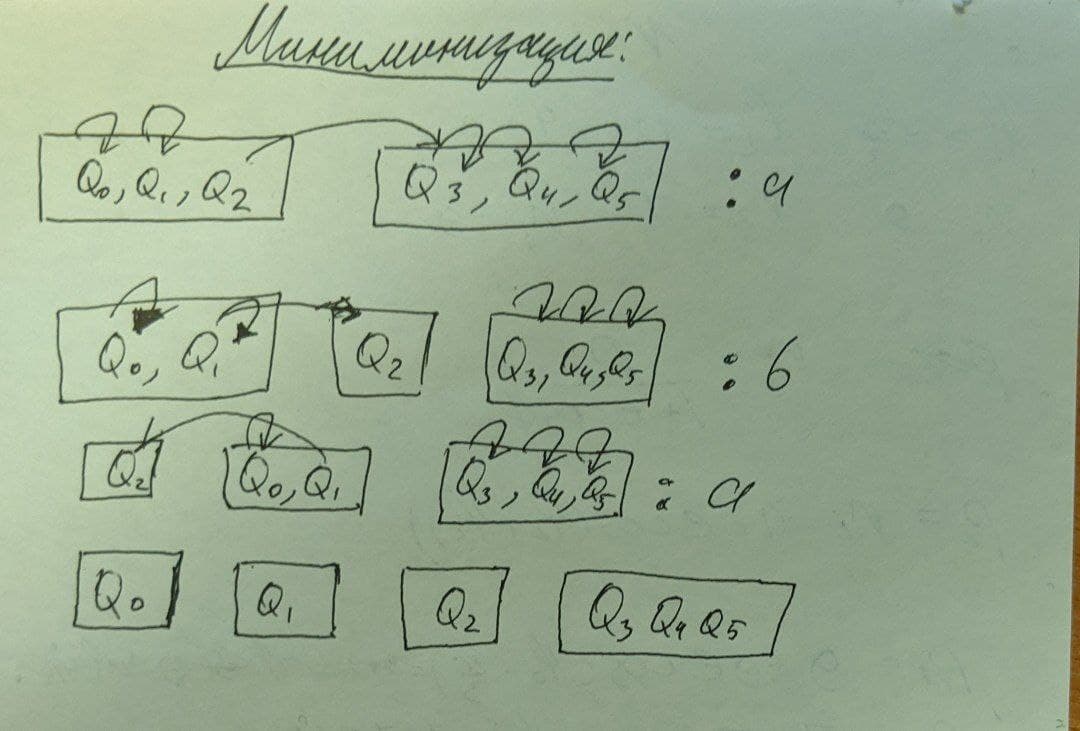 Минимонизация:
Q0, Q1, Q2 Q3, Q4, Q5 : a
Q0, Q1 Q2 Q3, Q4, Q5 : б
Q2 Q0, Q1 Q3, Q4, Q5 : a
Q0 Q1 Q2 Q3 Q4 Q5